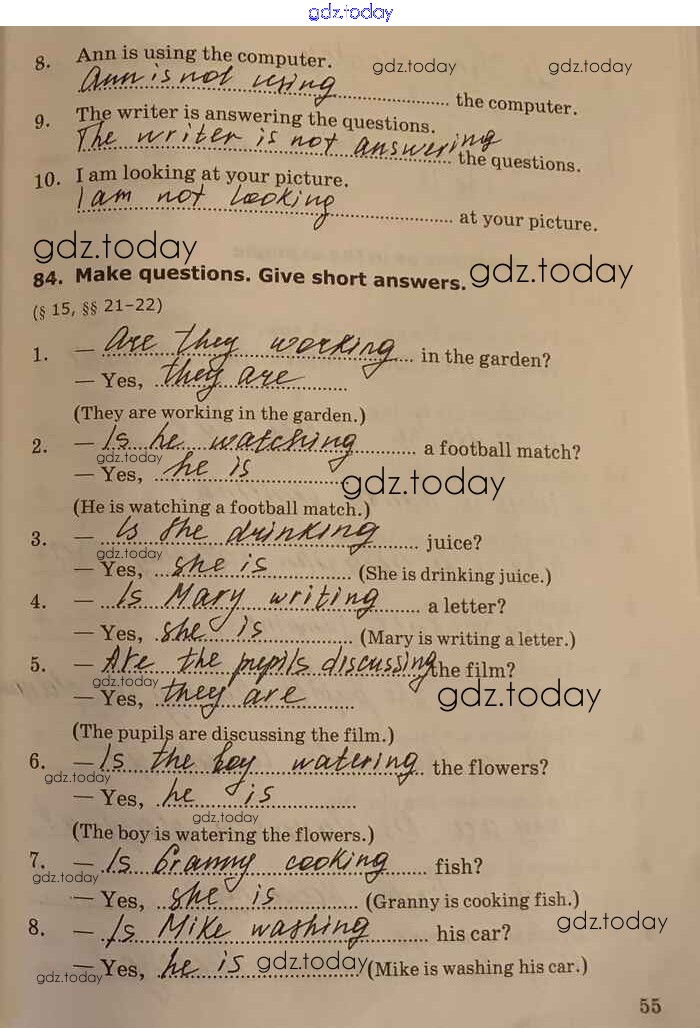 gdz.today
8. Ann is using the computer.
gdz.today gdz.today
Ann is not using the computer.
9. The writer is answering the questions.
The writer is not answering the questions.
10. I am looking at your picture.
I am not looking at your picture.
gdz.today
84. Make questions. Give short answers. gdz.today
(§ 15, §§ 21–22)
1. — Are they working in the garden?
— Yes, they are
(They are working in the garden.)
2. — Is he watching a football match?
gdz.today
— Yes, he is
gdz.today
(He is watching a football match.)
3. — Is she drinking juice?
gdz.today
— Yes, she is (She is drinking juice.)
4. — Is Mary writing a letter?
— Yes, she is (Mary is writing a letter.)
5. — Are the pupils discussing the film?
gdz.today
— Yes, they are gdz.today
(The pupils are discussing the film.)
6. — Is the boy watering the flowers?
gdz.today
— Yes, he is
gdz.today
(The boy is watering the flowers.)
7. — Is Granny cooking fish?
gdz.today
— Yes, she is (Granny is cooking fish.)
8. — Is Mike washing his car?
gdz.today
— Yes, he is gdz.today (Mike is washing his car.)
gdz.today
55